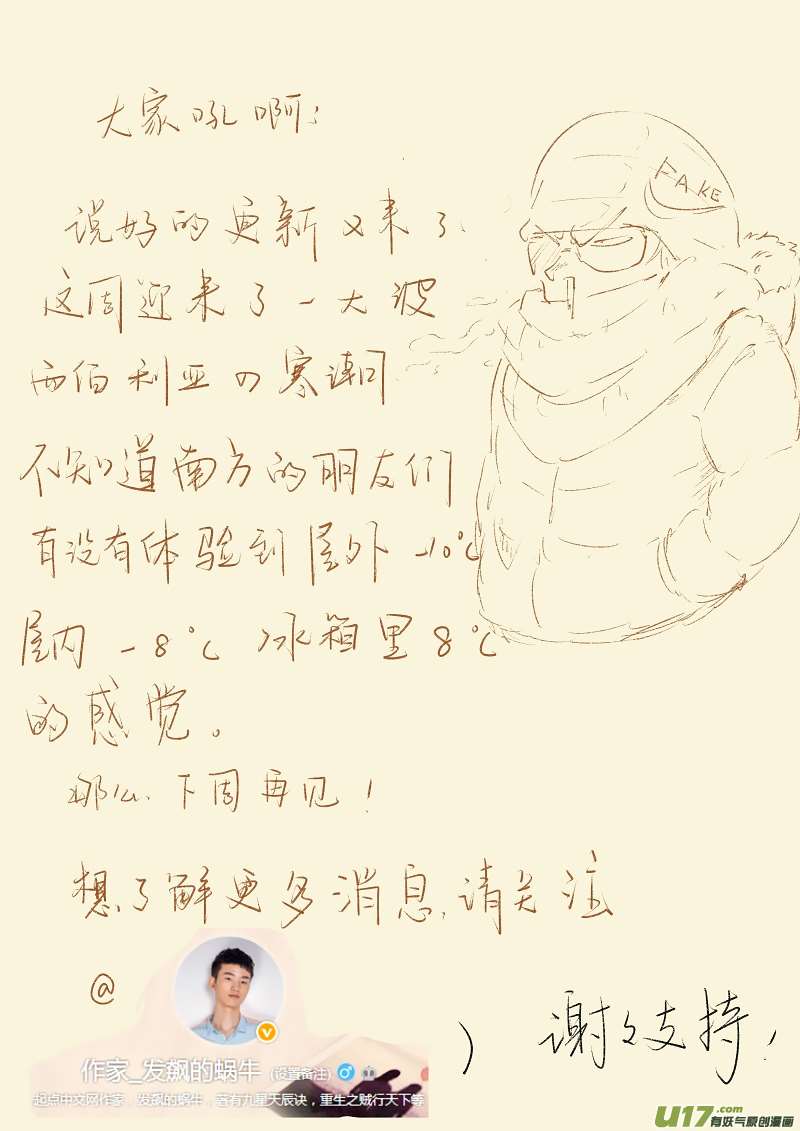 大家吼啊：
FAKE
说好的更新又来了
这周迎来了一大波
西伯利亚の寒潮
不知道南方的朋友们
有没有体验到屋外-10℃
屋内-8℃ 冰箱里8℃
的感觉。
那么、下周再见！
想了解更多消息,请关注
@
V
作家_发飙的蜗牛 (设置备注)
起点中文网作家，发飙的蜗牛，著有九星天辰诀，重生之贼行天下等
) 谢々支持！
U17.com
有妖气原创漫画